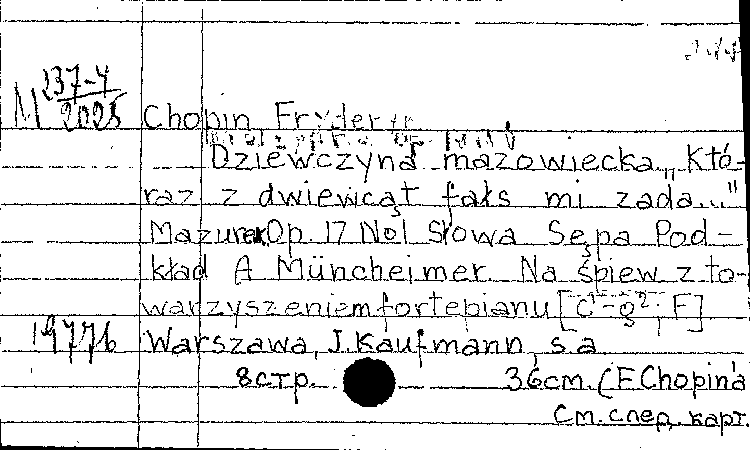 M 237-4/2025
Chopin Fryder
Dziewczyna mazowiecka „Któ-
raz z dwiewcąt fałs mi zada..."
Mazurek Op. 17 No1 Słowa Sępa Pod-
kład A Müncheimer. Na śpiew z to-
warzyszeniem fortepianu [C¹-g², F]
19776 Warszawa, J. Kaufmann, s.a.
8 стр. 36 cm. (F. Chopin'a
См. след. карт.